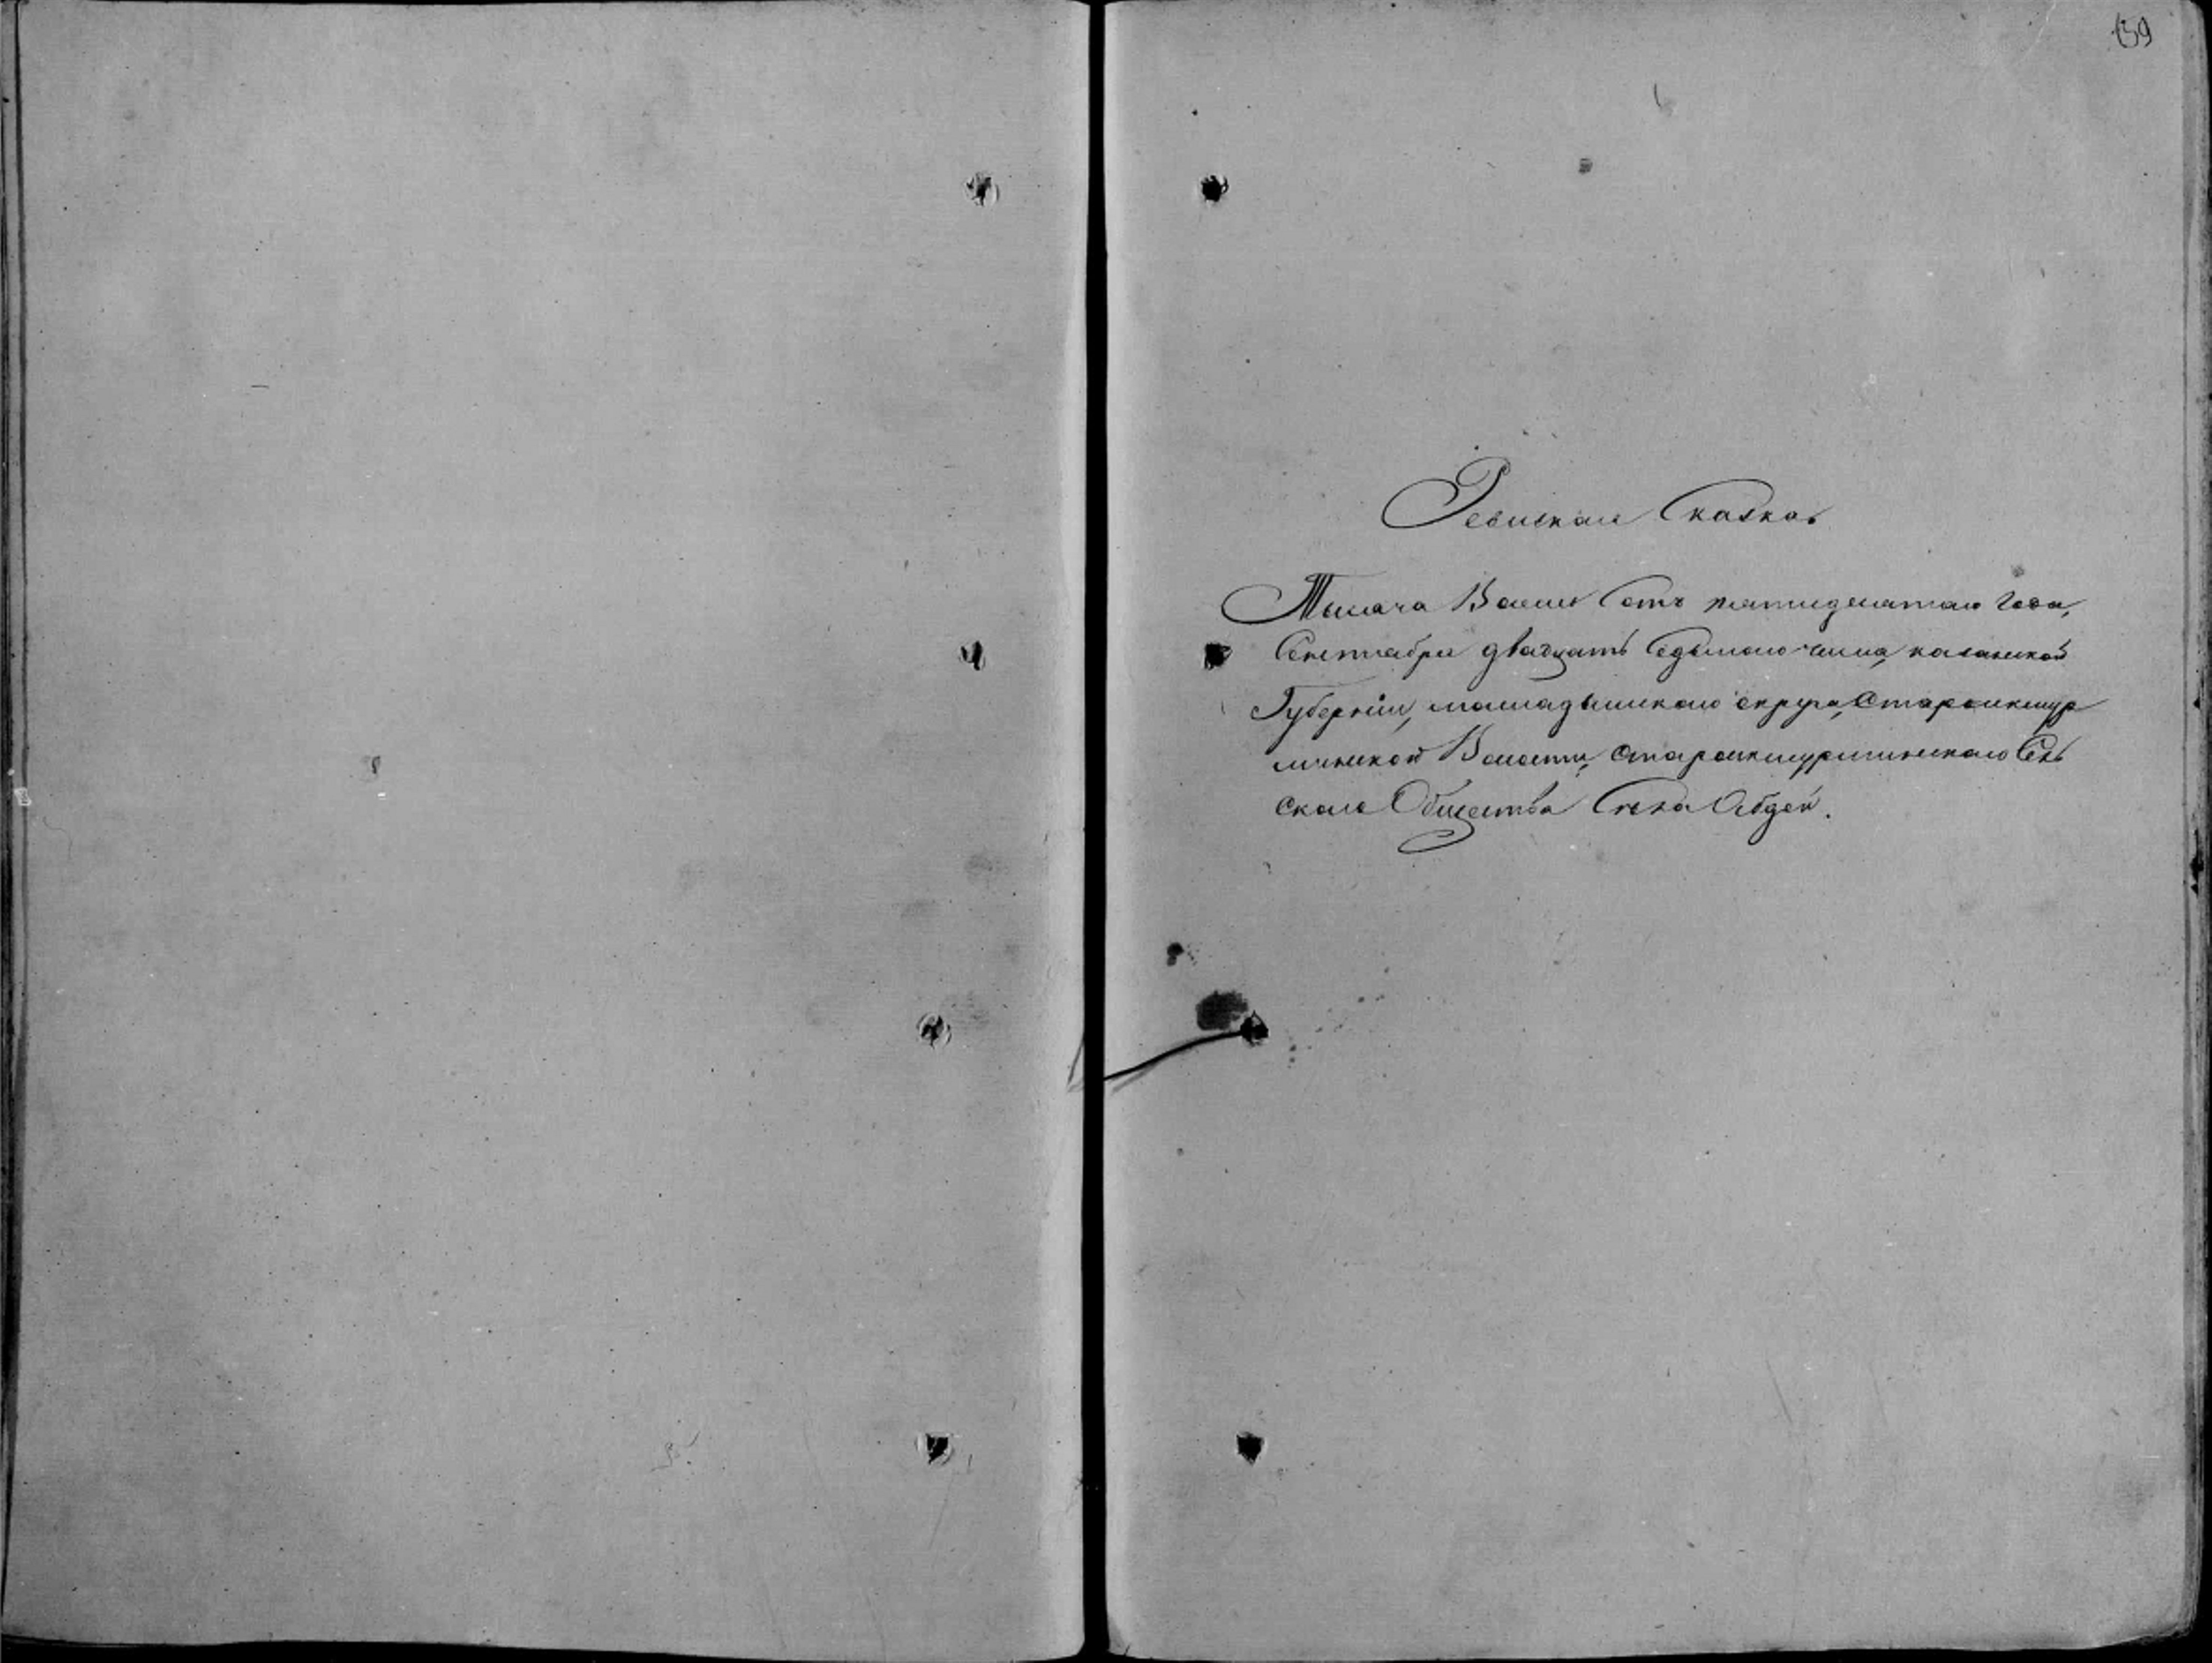 59
Ревиская Сказка
Тысяча Восемь сотъ пятидесятаго Года,
Сентября двадцать Седьмого числа, казанской
Губерніи, мамадышскаго округа, Староикшур
минской Волости, староикшурминскаго Сель
скаго Общества Села Абдей.